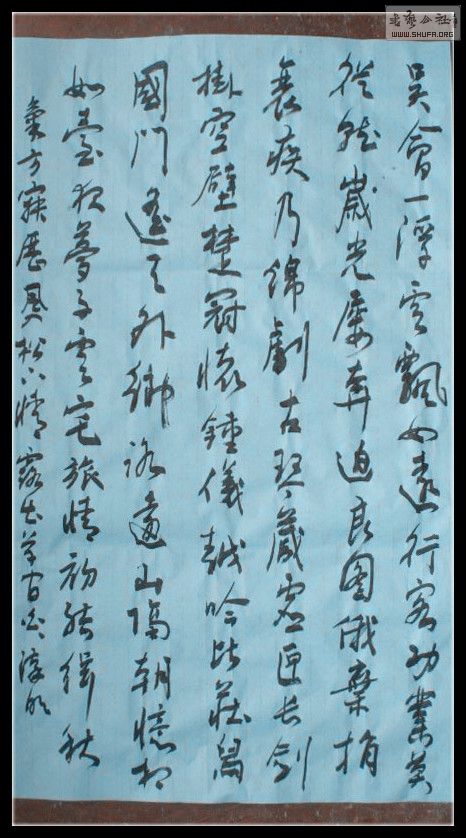 吳會一浮雲飄如遠行客功業莫
從就歲光屢奔迫良圖俄棄捐
衰疾乃綿劇古琴藏虛匣長劍
掛空壁楚冠懷鍾儀越吟比莊舄
國門遙天外鄉路遠山隔朝憶相
如臺夜夢子雲宅旅情初結緝秋
氣方寂歷風松下清露出草間白
WWW.SHUFA.ORG